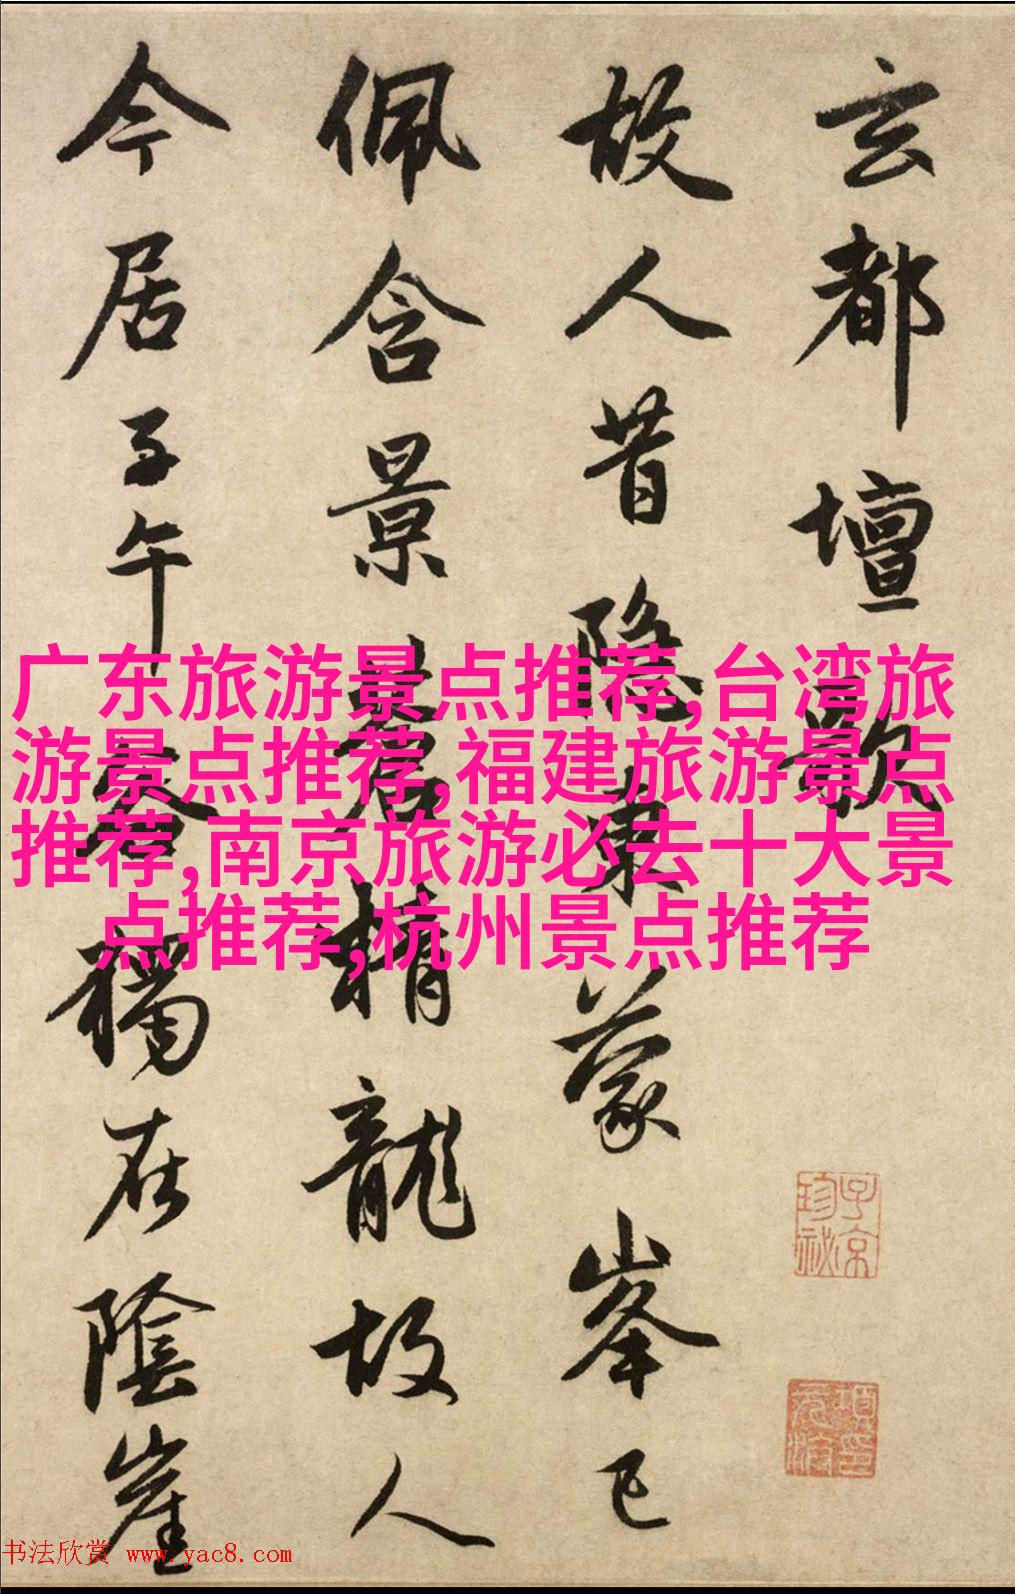 玄都壇歌
故人昔隱東蒙峯已
佩含景蒼精龍故人
今居子午谷獨在陰崖
广东旅游景点推荐,台湾旅
游景点推荐,福建旅游景点
推荐,南京旅游必去十大景
点推荐,杭州景点推荐
子京珍祕
項元汴印
书法欣赏 www.yac8.com